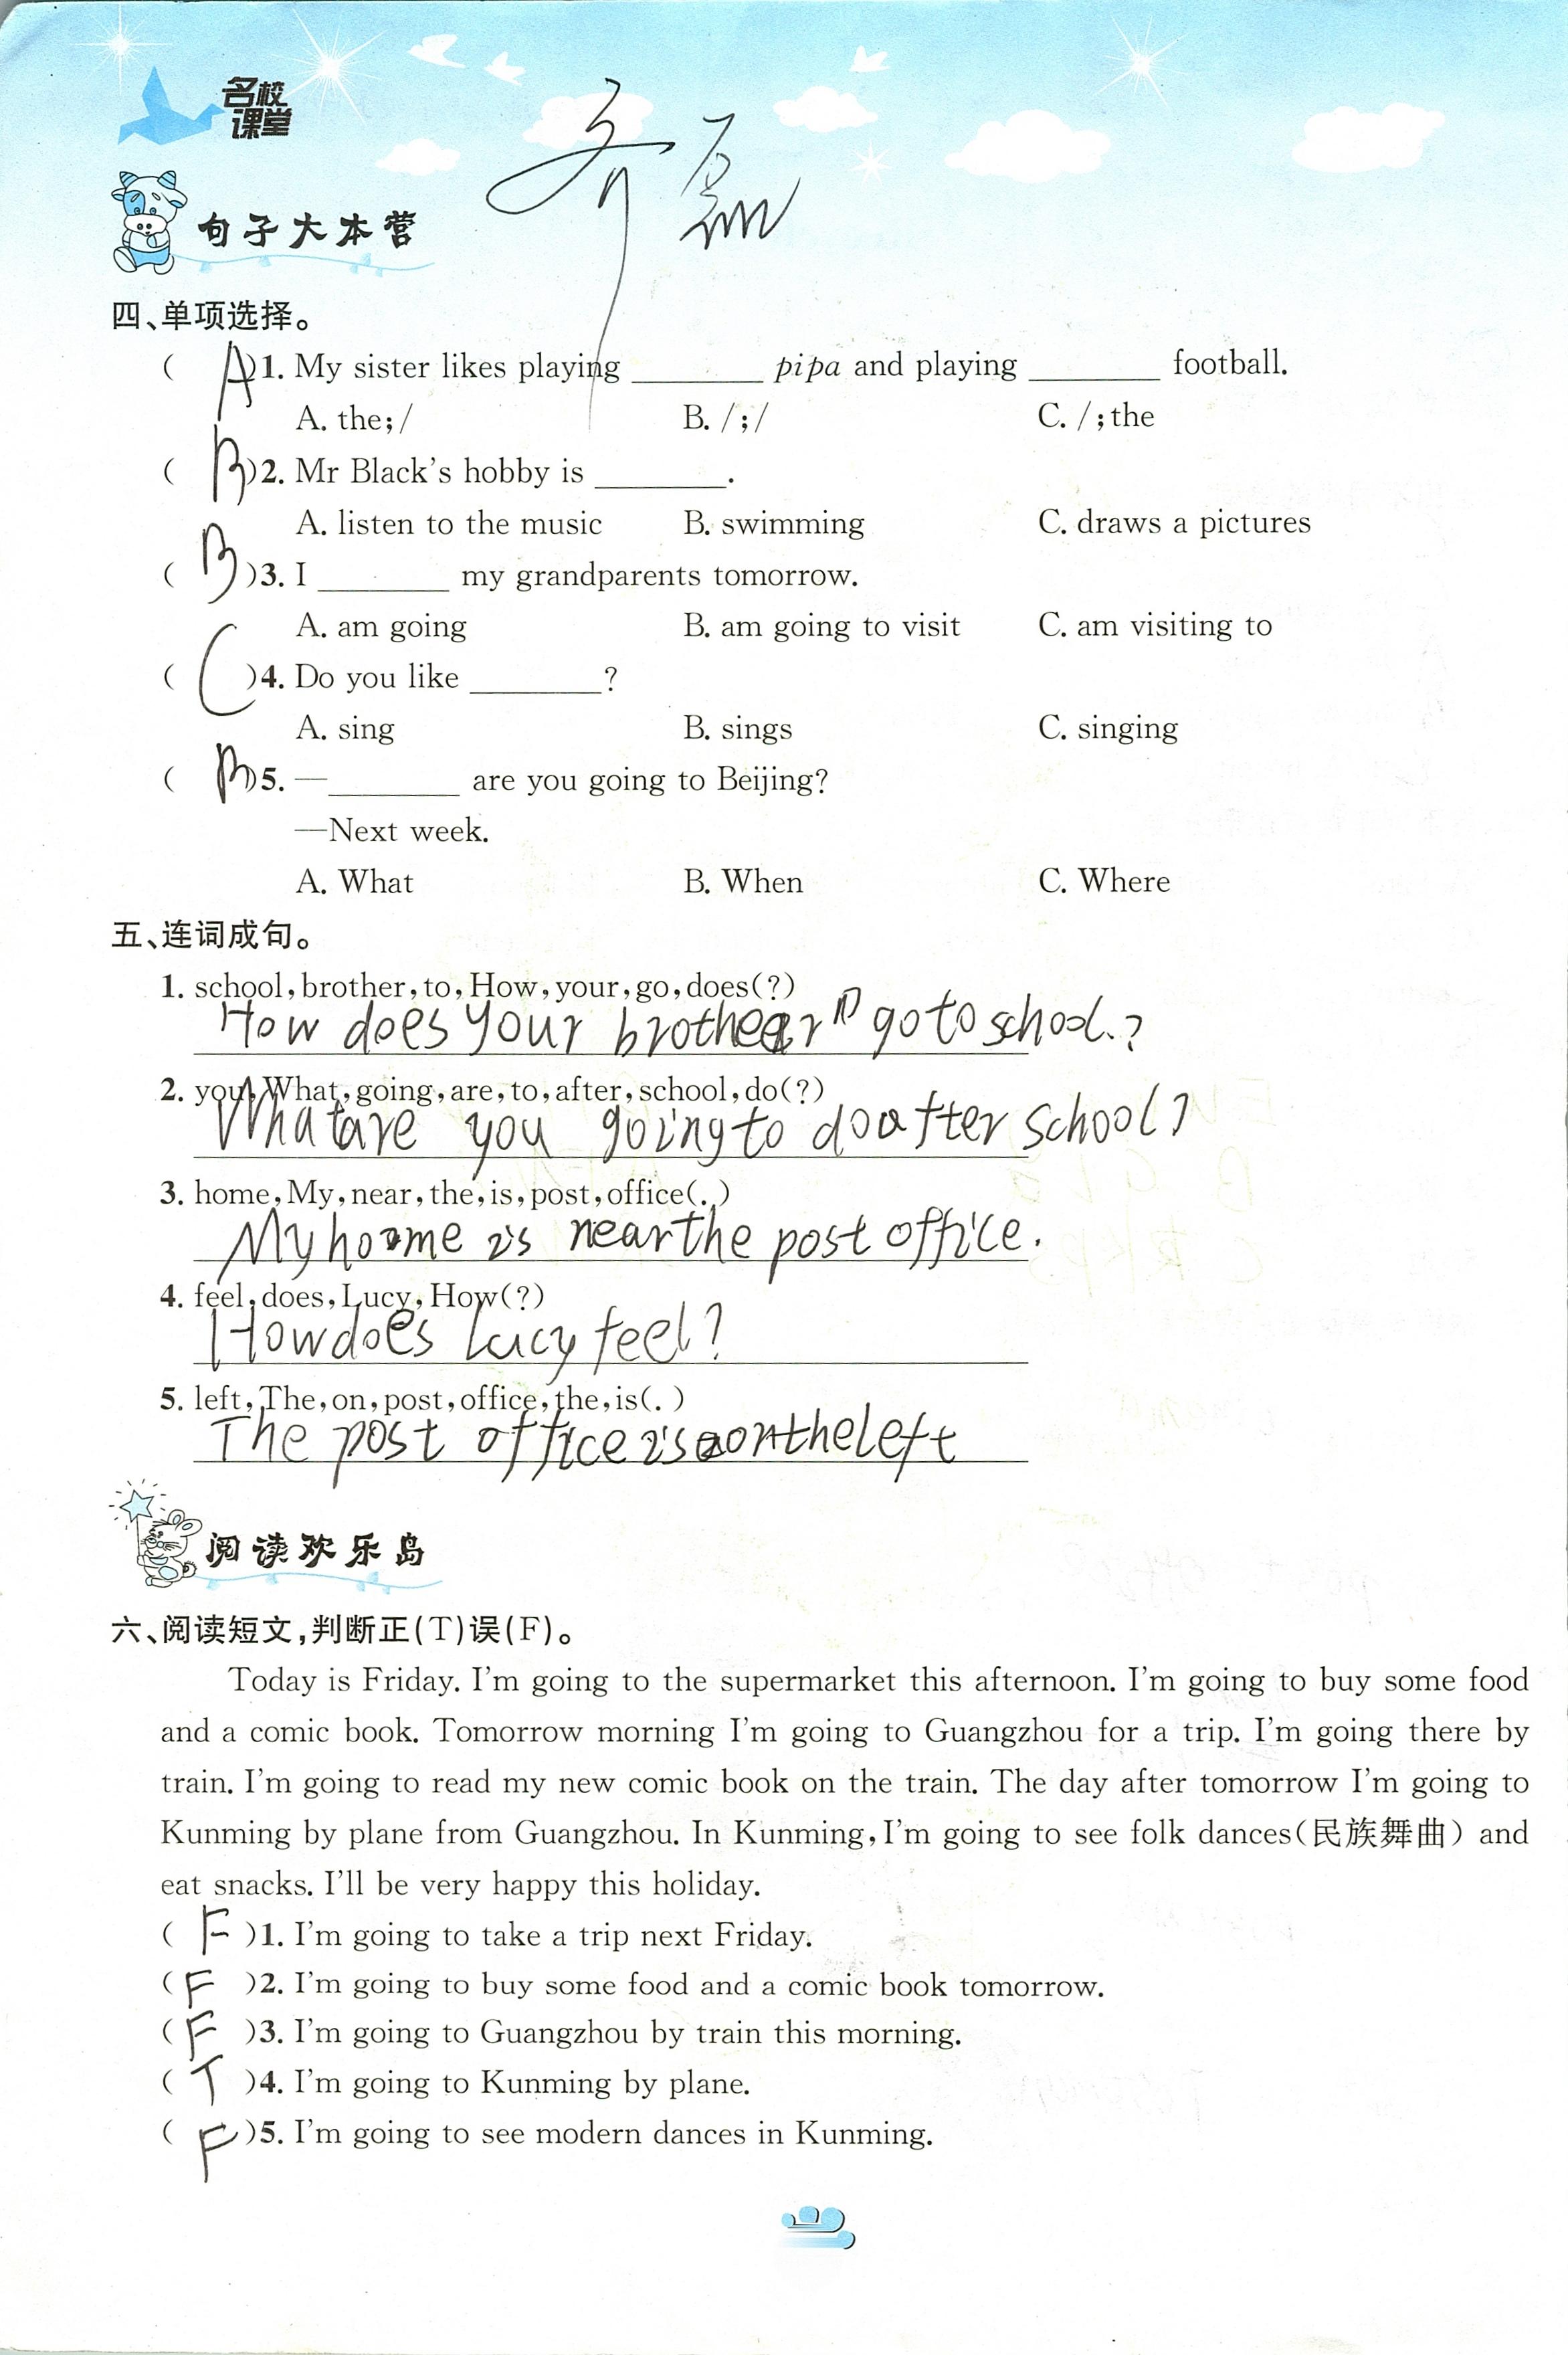 名校
课堂
齐磊
句子大本营
四、单项选择。
( A )1. My sister likes playing ________ pipa and playing ________ football.
A. the;/ B. /;/ C. /;the
( B )2. Mr Black's hobby is ________.
A. listen to the music B. swimming C. draws a pictures
( B )3. I ________ my grandparents tomorrow.
A. am going B. am going to visit C. am visiting to
( C )4. Do you like ________?
A. sing B. sings C. singing
( B )5. —________ are you going to Beijing?
—Next week.
A. What B. When C. Where
五、连词成句。
1. school,brother,to,How,your,go,does(?)
How does your brother go to school.?
2. you,What,going,are,to,after,school,do(?)
What are you going to do after school?
3. home,My,near,the,is,post,office(.)
My home is near the post office.
4. feel,does,Lucy,How(?)
How does Lucy feel?
5. left,The,on,post,office,the,is(.)
The post office is on the left
阅读欢乐岛
六、阅读短文,判断正(T)误(F)。
Today is Friday. I'm going to the supermarket this afternoon. I'm going to buy some food
and a comic book. Tomorrow morning I'm going to Guangzhou for a trip. I'm going there by
train. I'm going to read my new comic book on the train. The day after tomorrow I'm going to
Kunming by plane from Guangzhou. In Kunming,I'm going to see folk dances(民族舞曲) and
eat snacks. I'll be very happy this holiday.
( F )1. I'm going to take a trip next Friday.
( F )2. I'm going to buy some food and a comic book tomorrow.
( F )3. I'm going to Guangzhou by train this morning.
( T )4. I'm going to Kunming by plane.
( F )5. I'm going to see modern dances in Kunming.